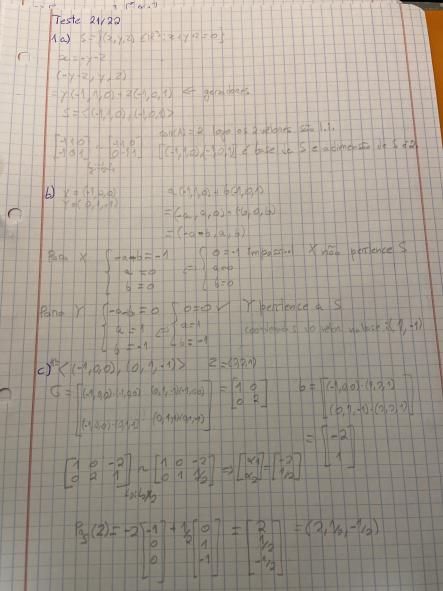 Teste 21/22
1.a) S = {(x,y,z) ∈ R³: x+y+z=0}
x = -y-z
(-y-z, y, z)
= y(-1,1,0) + z(-1,0,1) ← geradores
S = <(-1,1,0), (-1,0,1)>
car(A)=2 logo os 2 vetores são l.i.
[-1 1 0; -1 0 1] ~ [-1 1 0; 0 -1 1] é base de S e a dimensão de S é 2.
b) X = (-1,0,0) a(-1,1,0) + b(-1,0,1)
Y = (0,1,-1) = (-a, a, 0) + (-b, 0, b)
= (-a-b, a, b)
Para X { -a-b = -1; a = 0; b = 0 ⇔ { 0 = -1 Impossível; a=0; b=0 X não pertence S
Para Y { -a-b = 0; a = 1; b = -1 ⇔ { 0=0 ✓; a=1; b=-1 Y pertence a S
(1, -1)
c) <(-1,0,0), (0,1,-1)> Z = (2,2,1)
G = [(-1,0,0)·(-1,0,0) (0,1,-1)·(-1,0,0); (-1,0,0)·(0,1,-1) (0,1,-1)·(0,1,-1)] = [1 0; 0 2] b = [(-1,0,0)·(2,2,1); (0,1,-1)·(2,2,1)]
= [-2; 1]
[1 0 -2; 0 2 1] ~ [1 0 -2; 0 1 1/2] ⇒ [α1; α2] = [-2; 1/2]
(Z) = -2 [-1; 0; 0] + 1/2 [0; 1; -1] = [2; 1/2; -1/2] = (2, 1/2, -1/2)